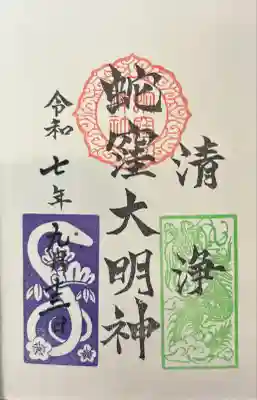 清浄
蛇窪大明神
令和七年九月日